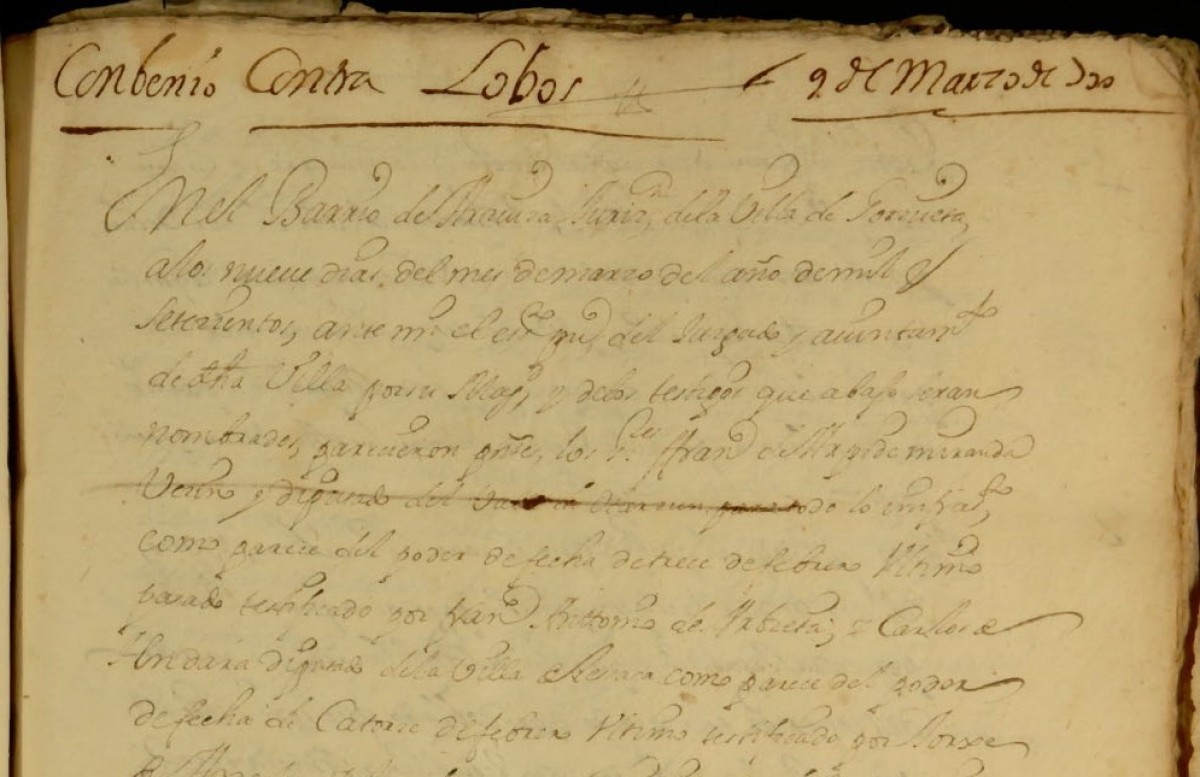 Conbenio Contra Lobos 9 de Marzo de 700
En el Barrio de Aracura Juriz.n dela Villa de Gorrueta,
a los nueue dias, del mes de marzo del año de mill y
setecientos, ante mi el ess.no pu.co del Juzgado y aiuntam.to
de dha Villa por su Mag.d, y delos testigos que abajo seran
nombrados, parecieron press.tes, los S.res ffran.co de miranda
Vecino y diputado del todo lo
como parece del poder de fecha de trece de febrero Vltimo
pasado testificado por Juan Anttonio de Vrbieta; y Carlos de
Andara diputado dela Villa de Lesaca como parece del poder
de fecha de Catorce de febrero Vltimo testificado por Jorxe